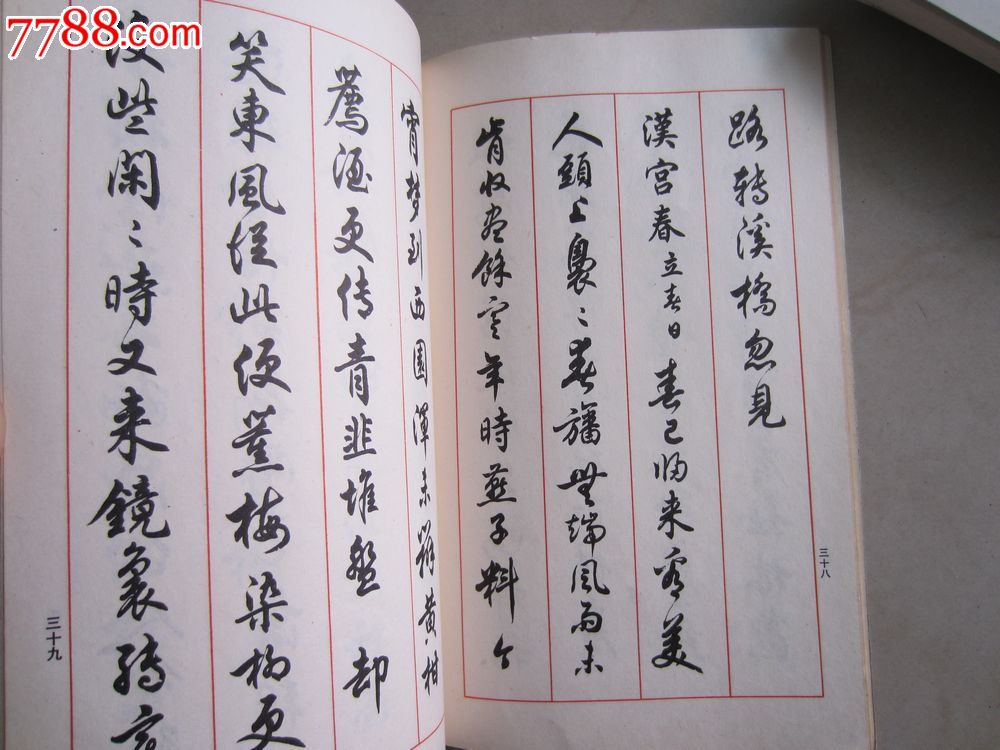 7788.com
路转溪橋忽見
漢宮春立春日 春已归来看美
人頭上裊〻春旛無端風雨未
肯收尽餘寒年時燕子料今
三十八
宵梦到西園渾未辦黄柑
薦酒更传青韭堆盤 却
笑東風從此便薰梅染柳更
没些閑〻時又来鏡裏转
三十九